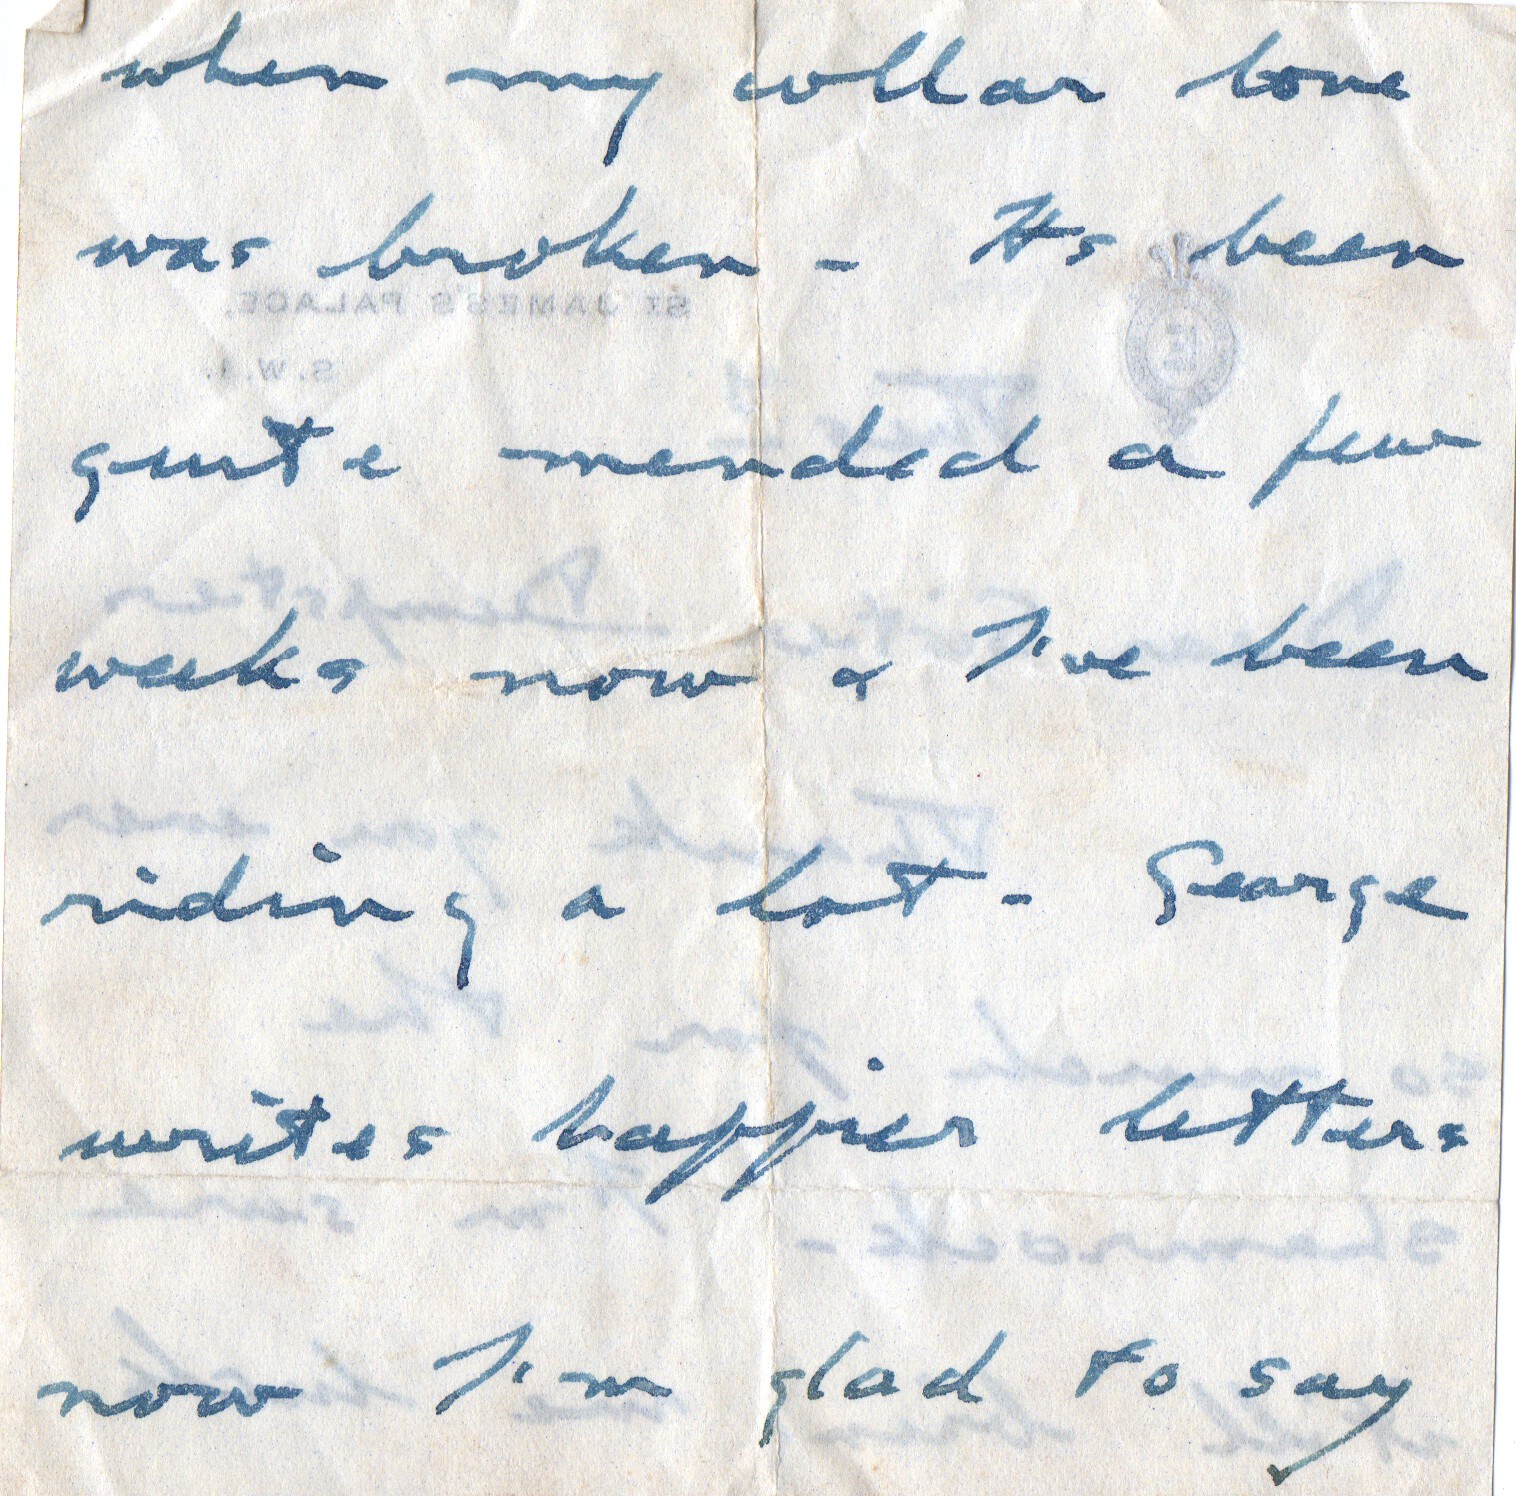 when my collar bone
was broken - Its been
ST JAMES'S PALACE,
S.W.1.
quite mended a few
weeks now & I've been
riding a lot - George
writes happier letters
now I'm glad to say